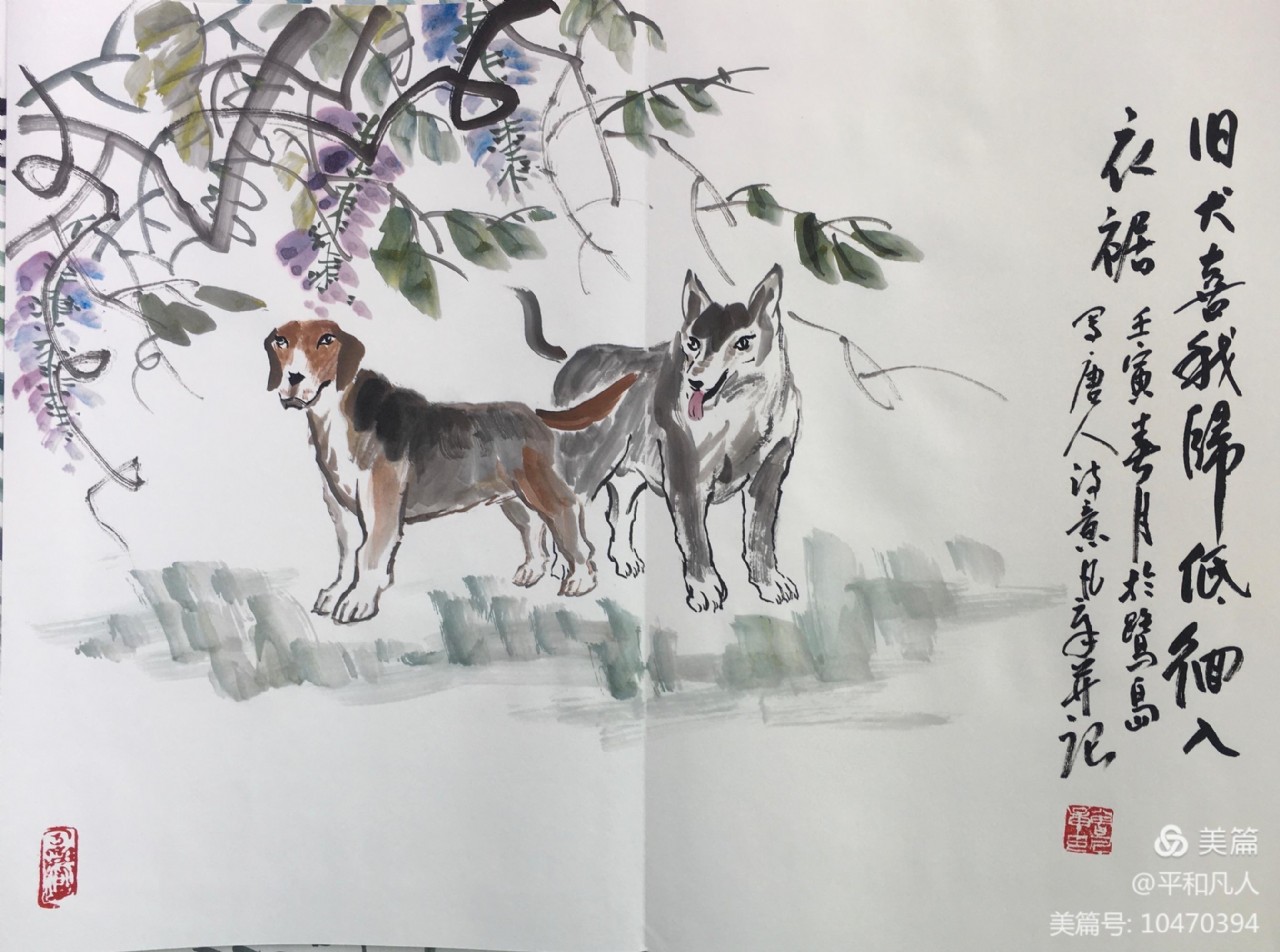 旧犬喜我歸低徊入
衣裾
壬寅春月於鷺島
写唐人诗意凡平并记
美篇
@平和凡人
美篇号: 10470394